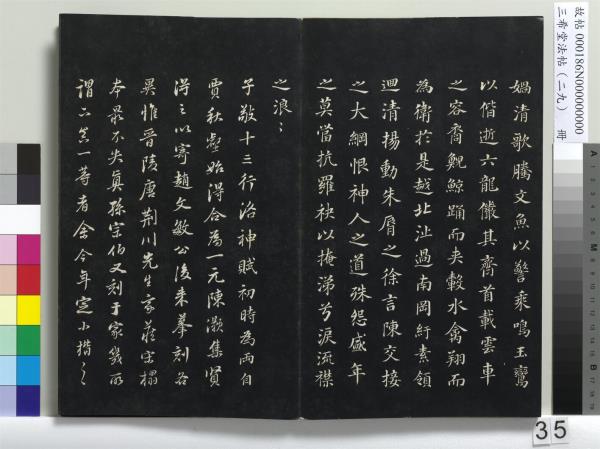 故帖 000186N000000000
三希堂法帖（二九） 冊
媧清歌騰文魚以警乘鳴玉鸞
以偕逝六龍儼其齊首載雲車
之容裔鯢鯨踊而夾轂水禽翔而
為衛於是越北沚過南岡紆素領
迴清揚動朱脣之徐言陳交接
之大綱恨神人之道殊怨盛年
之莫當抗羅袂以掩涕兮淚流襟
之浪〻
子敬十三行洛神賦初時為兩自
賈秋壑始得合為一元陳灝集賢
得之以寄趙文敏公後來摹刻各
異惟晉陵唐荊川先生家藏宋搨
本最不失真孫宗伯又刻于家幾所
謂下真一等者余今年定小楷之
35